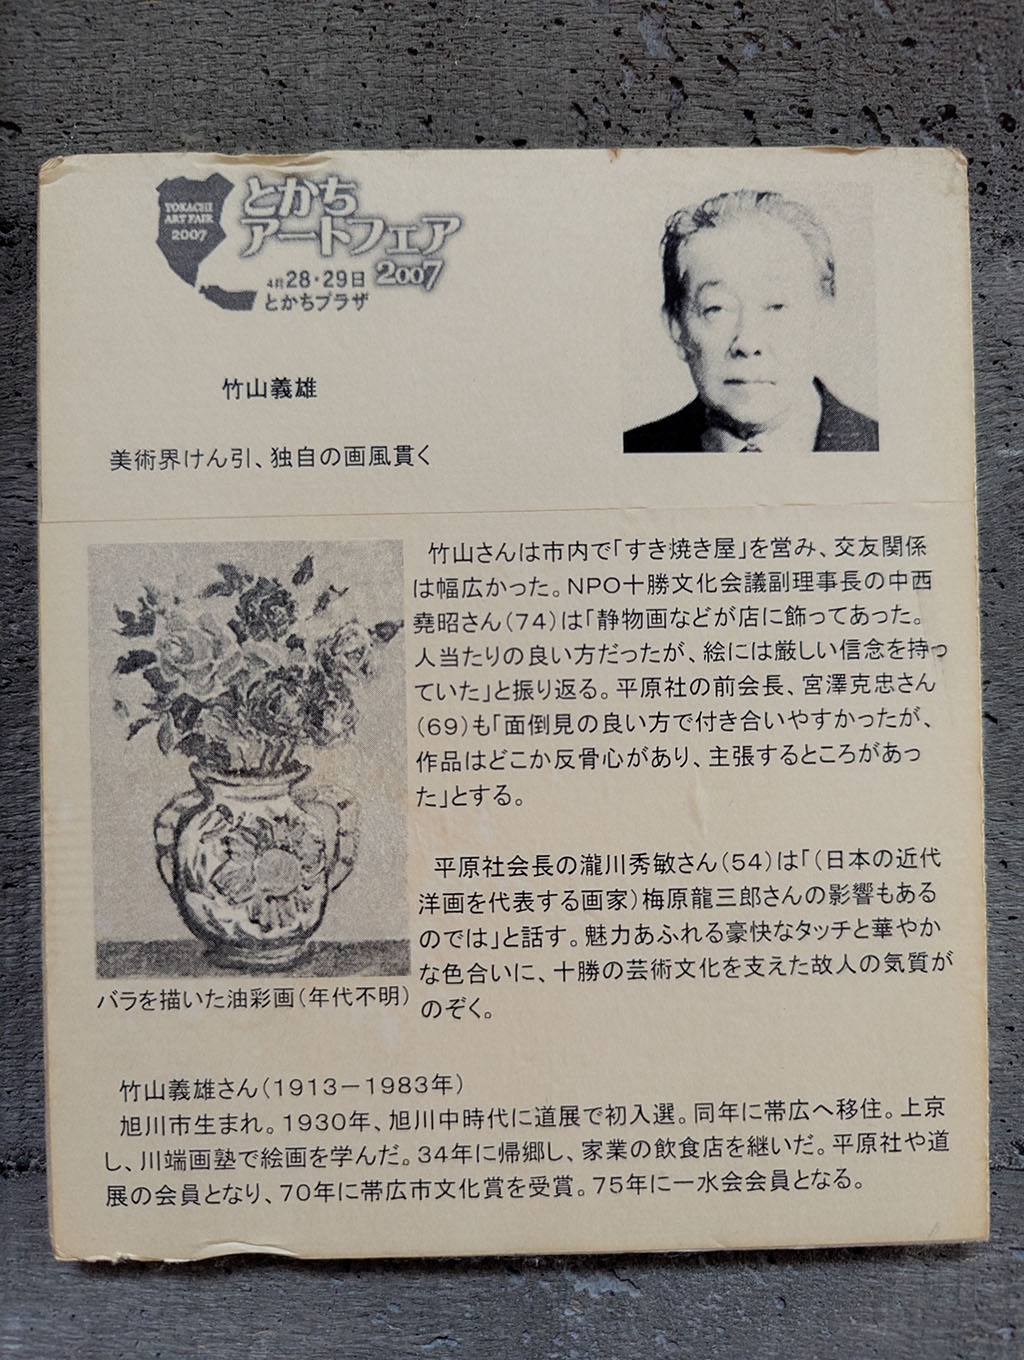 TOKACHI
ART FAIR
2007
とかち
アートフェア
4月28・29日 2007
とかちプラザ
竹山義雄
美術界けん引、独自の画風貫く
竹山さんは市内で「すき焼き屋」を営み、交友関係
は幅広かった。NPO十勝文化会議副理事長の中西
堯昭さん(74)は「静物画などが店に飾ってあった。
人当たりの良い方だったが、絵には厳しい信念を持っ
ていた」と振り返る。平原社の前会長、宮澤克忠さん
(69)も「面倒見の良い方で付き合いやすかったが、
作品はどこか反骨心があり、主張するところがあっ
た」とする。
平原社会長の瀧川秀敏さん(54)は「(日本の近代
洋画を代表する画家)梅原龍三郎さんの影響もある
のでは」と話す。魅力あふれる豪快なタッチと華やか
な色合いに、十勝の芸術文化を支えた故人の気質が
のぞく。
バラを描いた油彩画(年代不明)
竹山義雄さん(1913－1983年)
旭川市生まれ。1930年、旭川中時代に道展で初入選。同年に帯広へ移住。上京
し、川端画塾で絵画を学んだ。34年に帰郷し、家業の飲食店を継いだ。平原社や道
展の会員となり、70年に帯広市文化賞を受賞。75年に一水会会員となる。